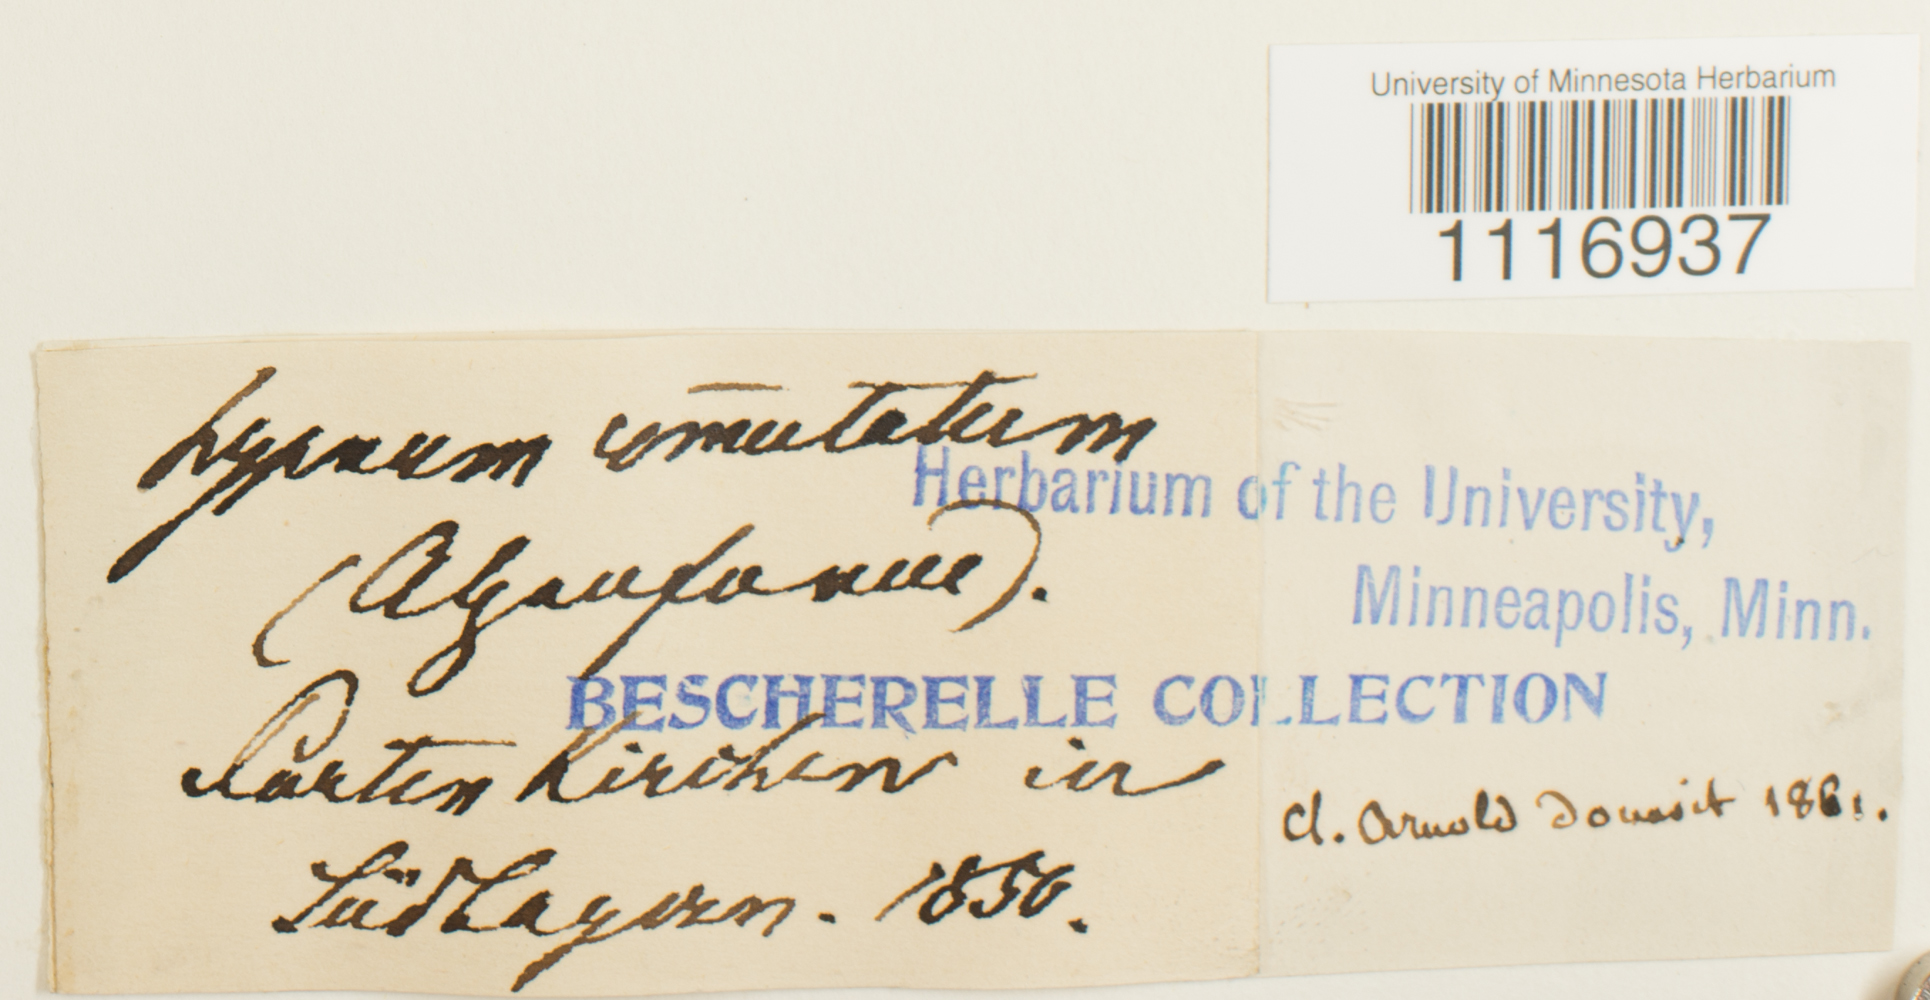 University of Minnesota Herbarium
1116937
hypnum com̄utatum
Herbarium of the University,
Minneapolis, Minn.
BESCHERELLE COLLECTION
Partenkirchen in
Südbayern. 1856.
cl. Arnold Donavit 1861.